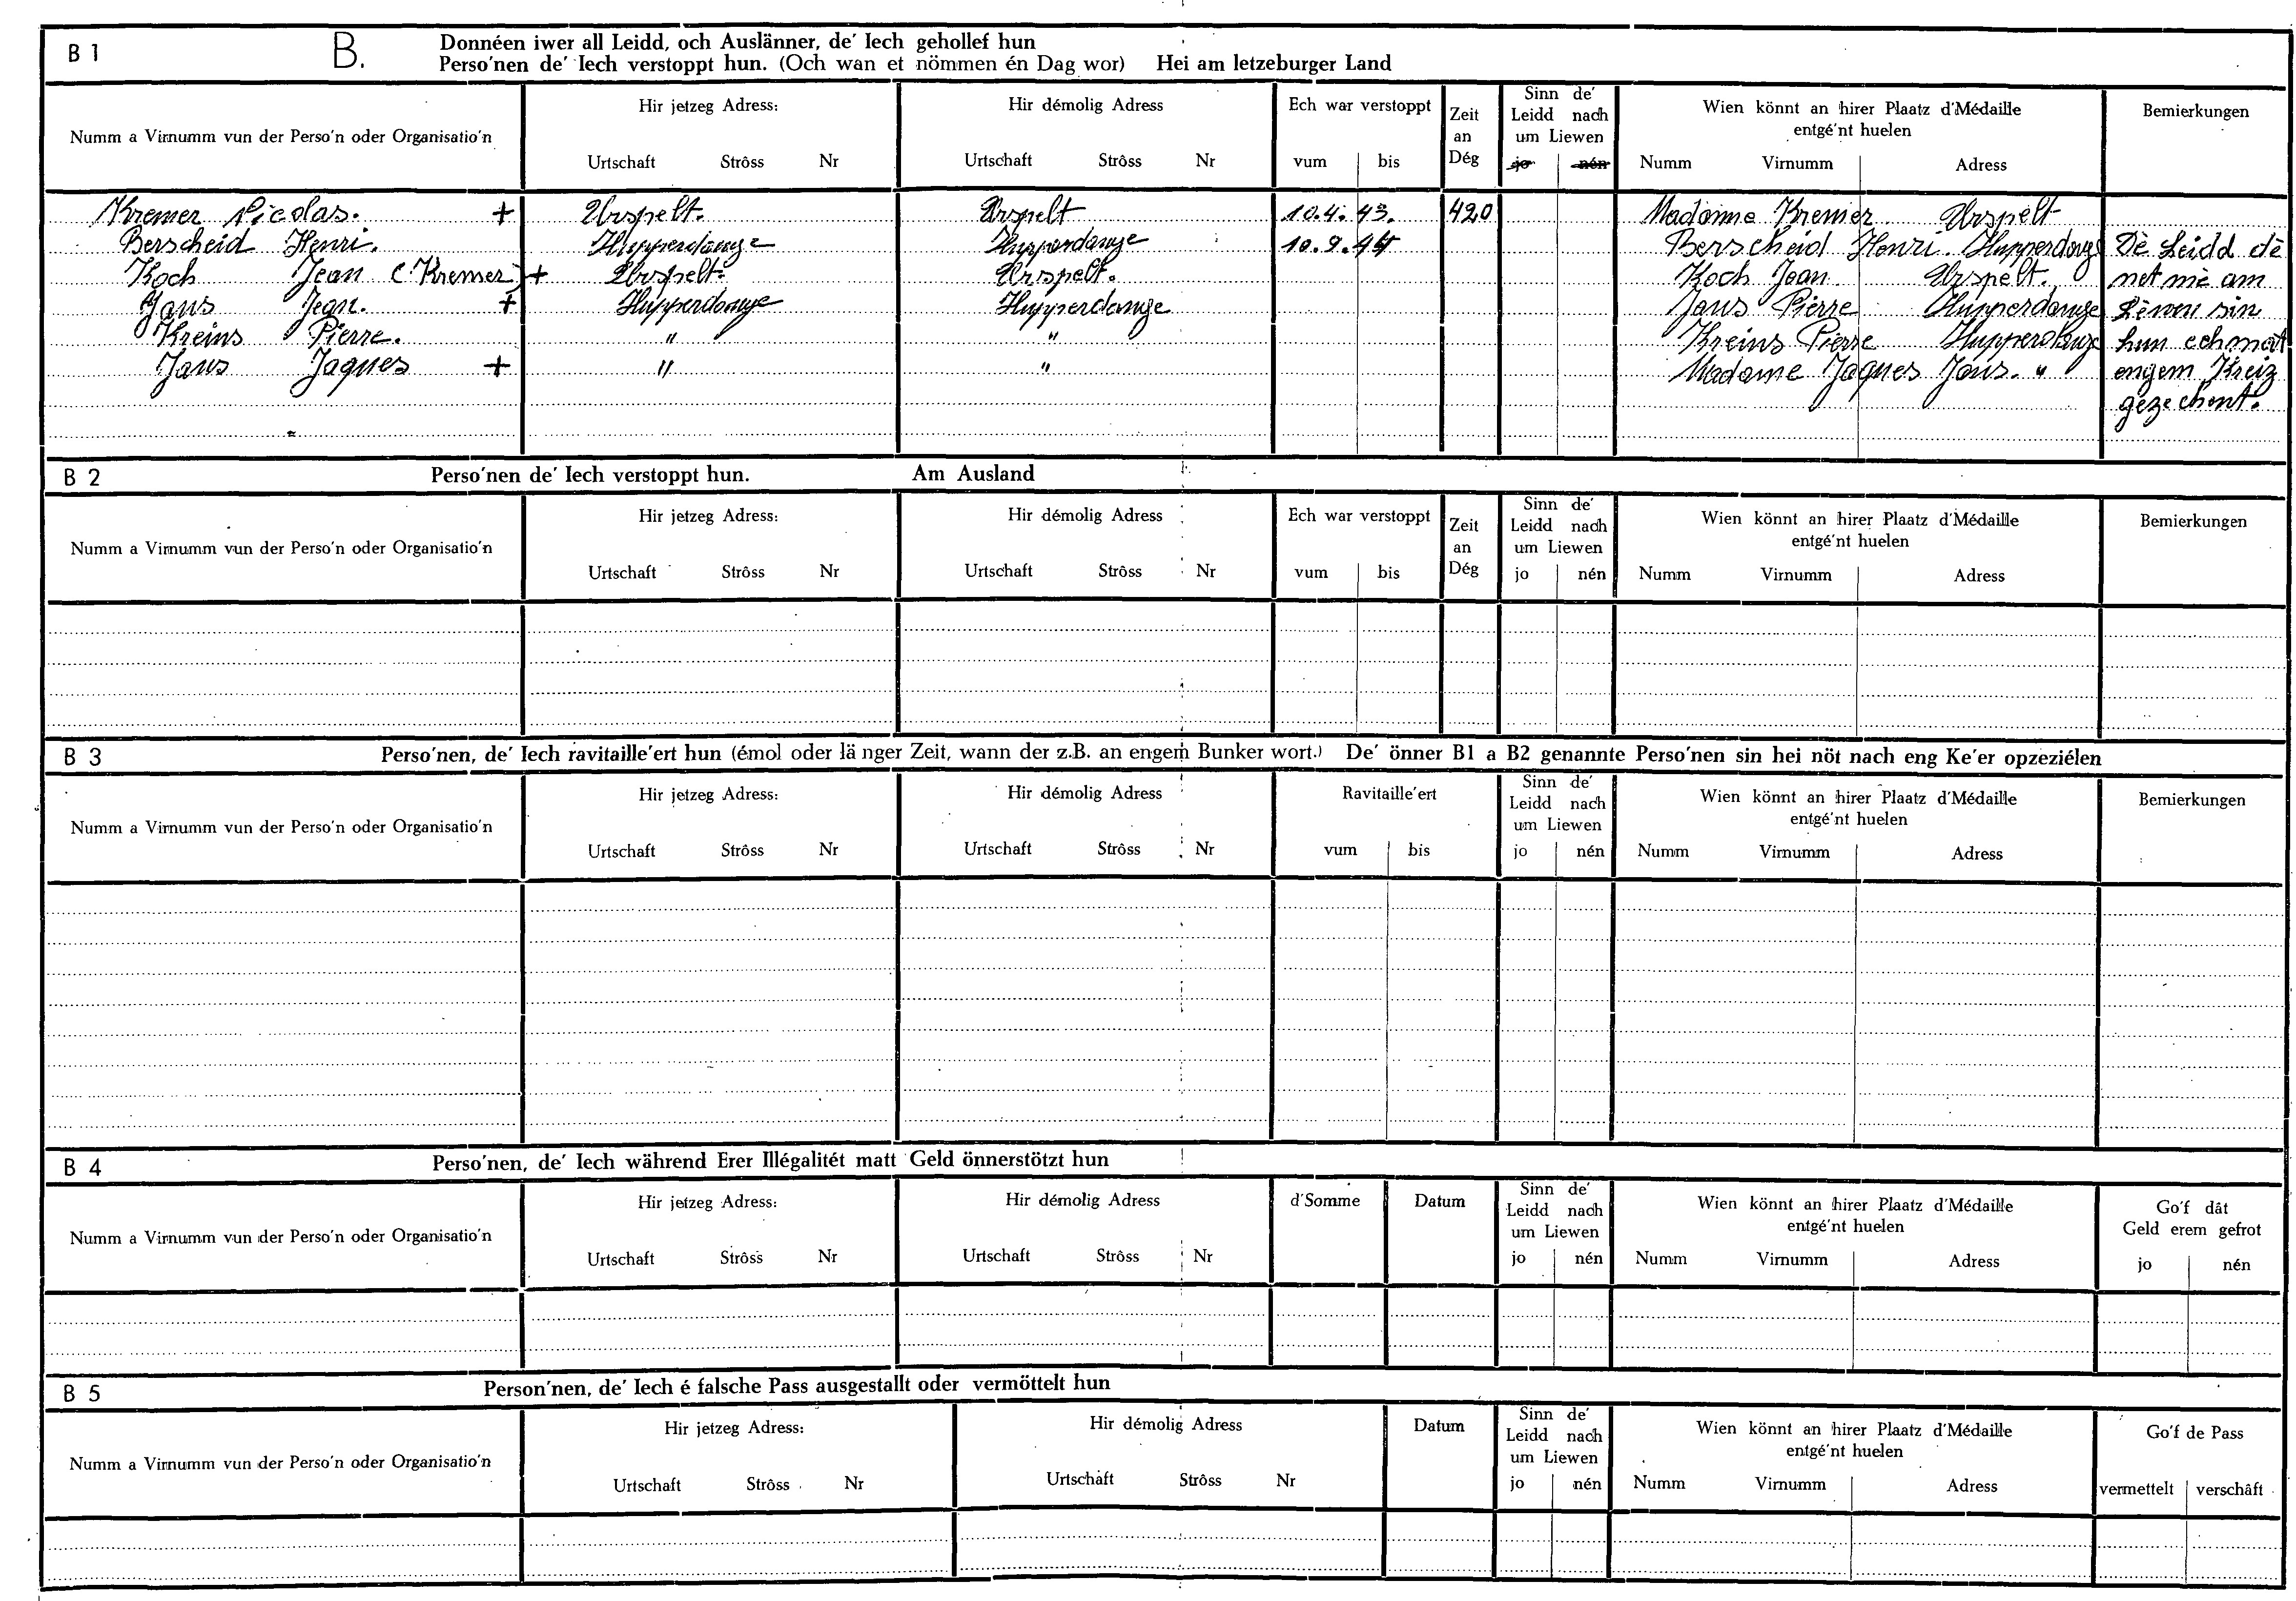 B 1 B. Donnéen iwer all Leidd, och Auslänner, de' Iech gehollef hun
Perso'nen de' Iech verstoppt hun. (Och wan et nömmen én Dag wor) Hei am letzeburger Land
Numm a Virnumm vun der Perso'n oder Organisatio'n
Hir jetzeg Adress:
Urtschaft Strôss Nr
Hir démolig Adress
Urtschaft Strôss Nr
Ech war verstoppt
vum bis
Zeit
an
Dég
Sinn de'
Leidd nach
um Liewen
jo nén
Wien könnt an hirer Plaatz d'Médaille
entgé'nt huelen
Numm Virnumm Adress
Bemierkungen
Kremer Nicolas. + Urspelt. Urspelt 10.4.43. 420 Madame Kremer Urspelt
Berscheid Henri. Hupperdange Hupperdange 10.9.44 Berscheid Henri. Hupperdange Dè Leidd dè
Koch Jean (Kremer) + Urspelt. Urspelt. Koch Jean Urspelt. net mè am
Jans Jean. + Hupperdange Hupperdange Jans Pierre Hupperdange Lèwen sin
Kreins Pierre. " " Kreins Pierre Hupperdange hun ech mat
Jans Jaques + " " Madame Jaques Jans. " engem Kreiz
gezechent.
B 2 Perso'nen de' Iech verstoppt hun. Am Ausland
Numm a Virnumm vun der Perso'n oder Organisatio'n
Hir jetzeg Adress:
Urtschaft Strôss Nr
Hir démolig Adress
Urtschaft Strôss Nr
Ech war verstoppt
vum bis
Zeit
an
Dég
Sinn de'
Leidd nach
um Liewen
jo nén
Wien könnt an hirer Plaatz d'Médaille
entgé'nt huelen
Numm Virnumm Adress
Bemierkungen
B 3 Perso'nen, de' Iech ravitaille'ert hun (émol oder länger Zeit, wann der z.B. an engem Bunker wort.) De' önner B1 a B2 genannte Perso'nen sin hei nöt nach eng Ke'er opzeziélen
Numm a Virnumm vun der Perso'n oder Organisatio'n
Hir jetzeg Adress:
Urtschaft Strôss Nr
Hir démolig Adress
Urtschaft Strôss Nr
Ravitaille'ert
vum bis
Sinn de'
Leidd nach
um Liewen
jo nén
Wien könnt an hirer Plaatz d'Médaille
entgé'nt huelen
Numm Virnumm Adress
Bemierkungen
B 4 Perso'nen, de' Iech während Erer Illégalitét matt Geld önnerstötzt hun
Numm a Virnumm vun der Perso'n oder Organisatio'n
Hir jetzeg Adress:
Urtschaft Strôss Nr
Hir démolig Adress
Urtschaft Strôss Nr
d'Somme
Datum
Sinn de'
Leidd nach
um Liewen
jo nén
Wien könnt an hirer Plaatz d'Médaille
entgé'nt huelen
Numm Virnumm Adress
Go'f dât
Geld erem gefrot
jo nén
B 5 Person'nen, de' Iech é falsche Pass ausgestallt oder vermöttelt hun
Numm a Virnumm vun der Perso'n oder Organisatio'n
Hir jetzeg Adress:
Urtschaft Strôss Nr
Hir démolig Adress
Urtschaft Strôss Nr
Datum
Sinn de'
Leidd nach
um Liewen
jo nén
Wien könnt an hirer Plaatz d'Médaille
entgé'nt huelen
Numm Virnumm Adress
Go'f de Pass
vermettelt verschâft